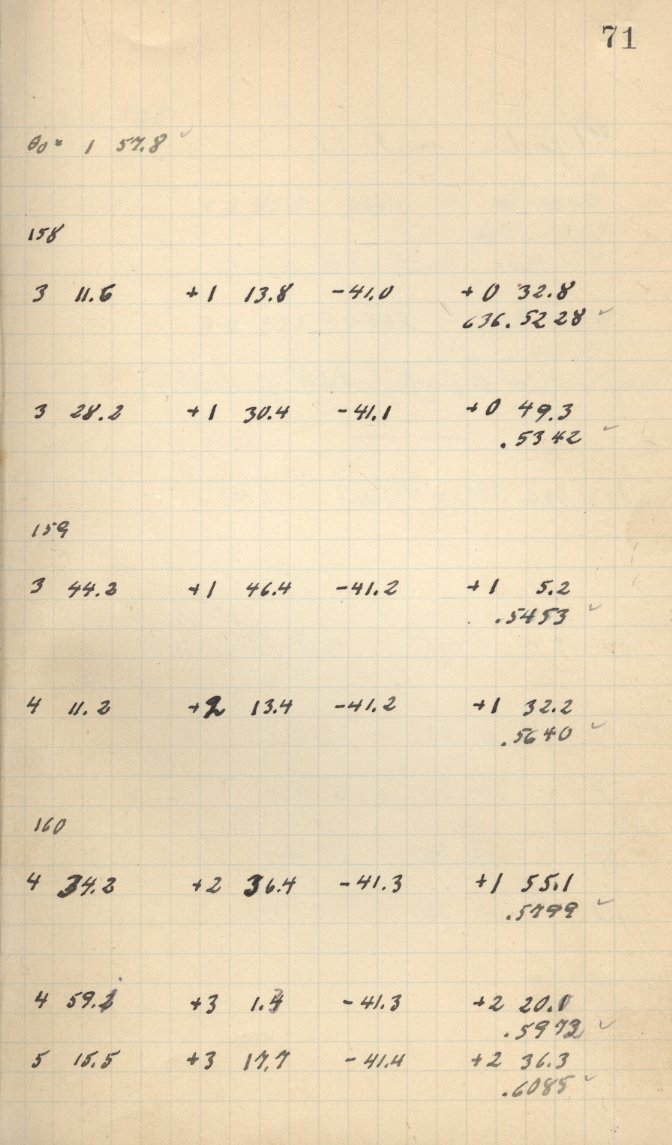 71
θ₀ = 1 57.8 ✓
158
3 11.6 +1 13.8 -41.0 +0 32.8
636.5228 ✓
3 28.2 +1 30.4 -41.1 +0 49.3
.5342 ✓
159
3 44.2 +1 46.4 -41.2 +1 5.2
.5453 ✓
4 11.2 +2 13.4 -41.2 +1 32.2
.5640 ✓
160
4 34.2 +2 36.4 -41.3 +1 55.1
.5799 ✓
4 59.2 +3 1.4 -41.3 +2 20.1
.5972 ✓
5 15.5 +3 17.7 -41.4 +2 36.3
.6085 ✓